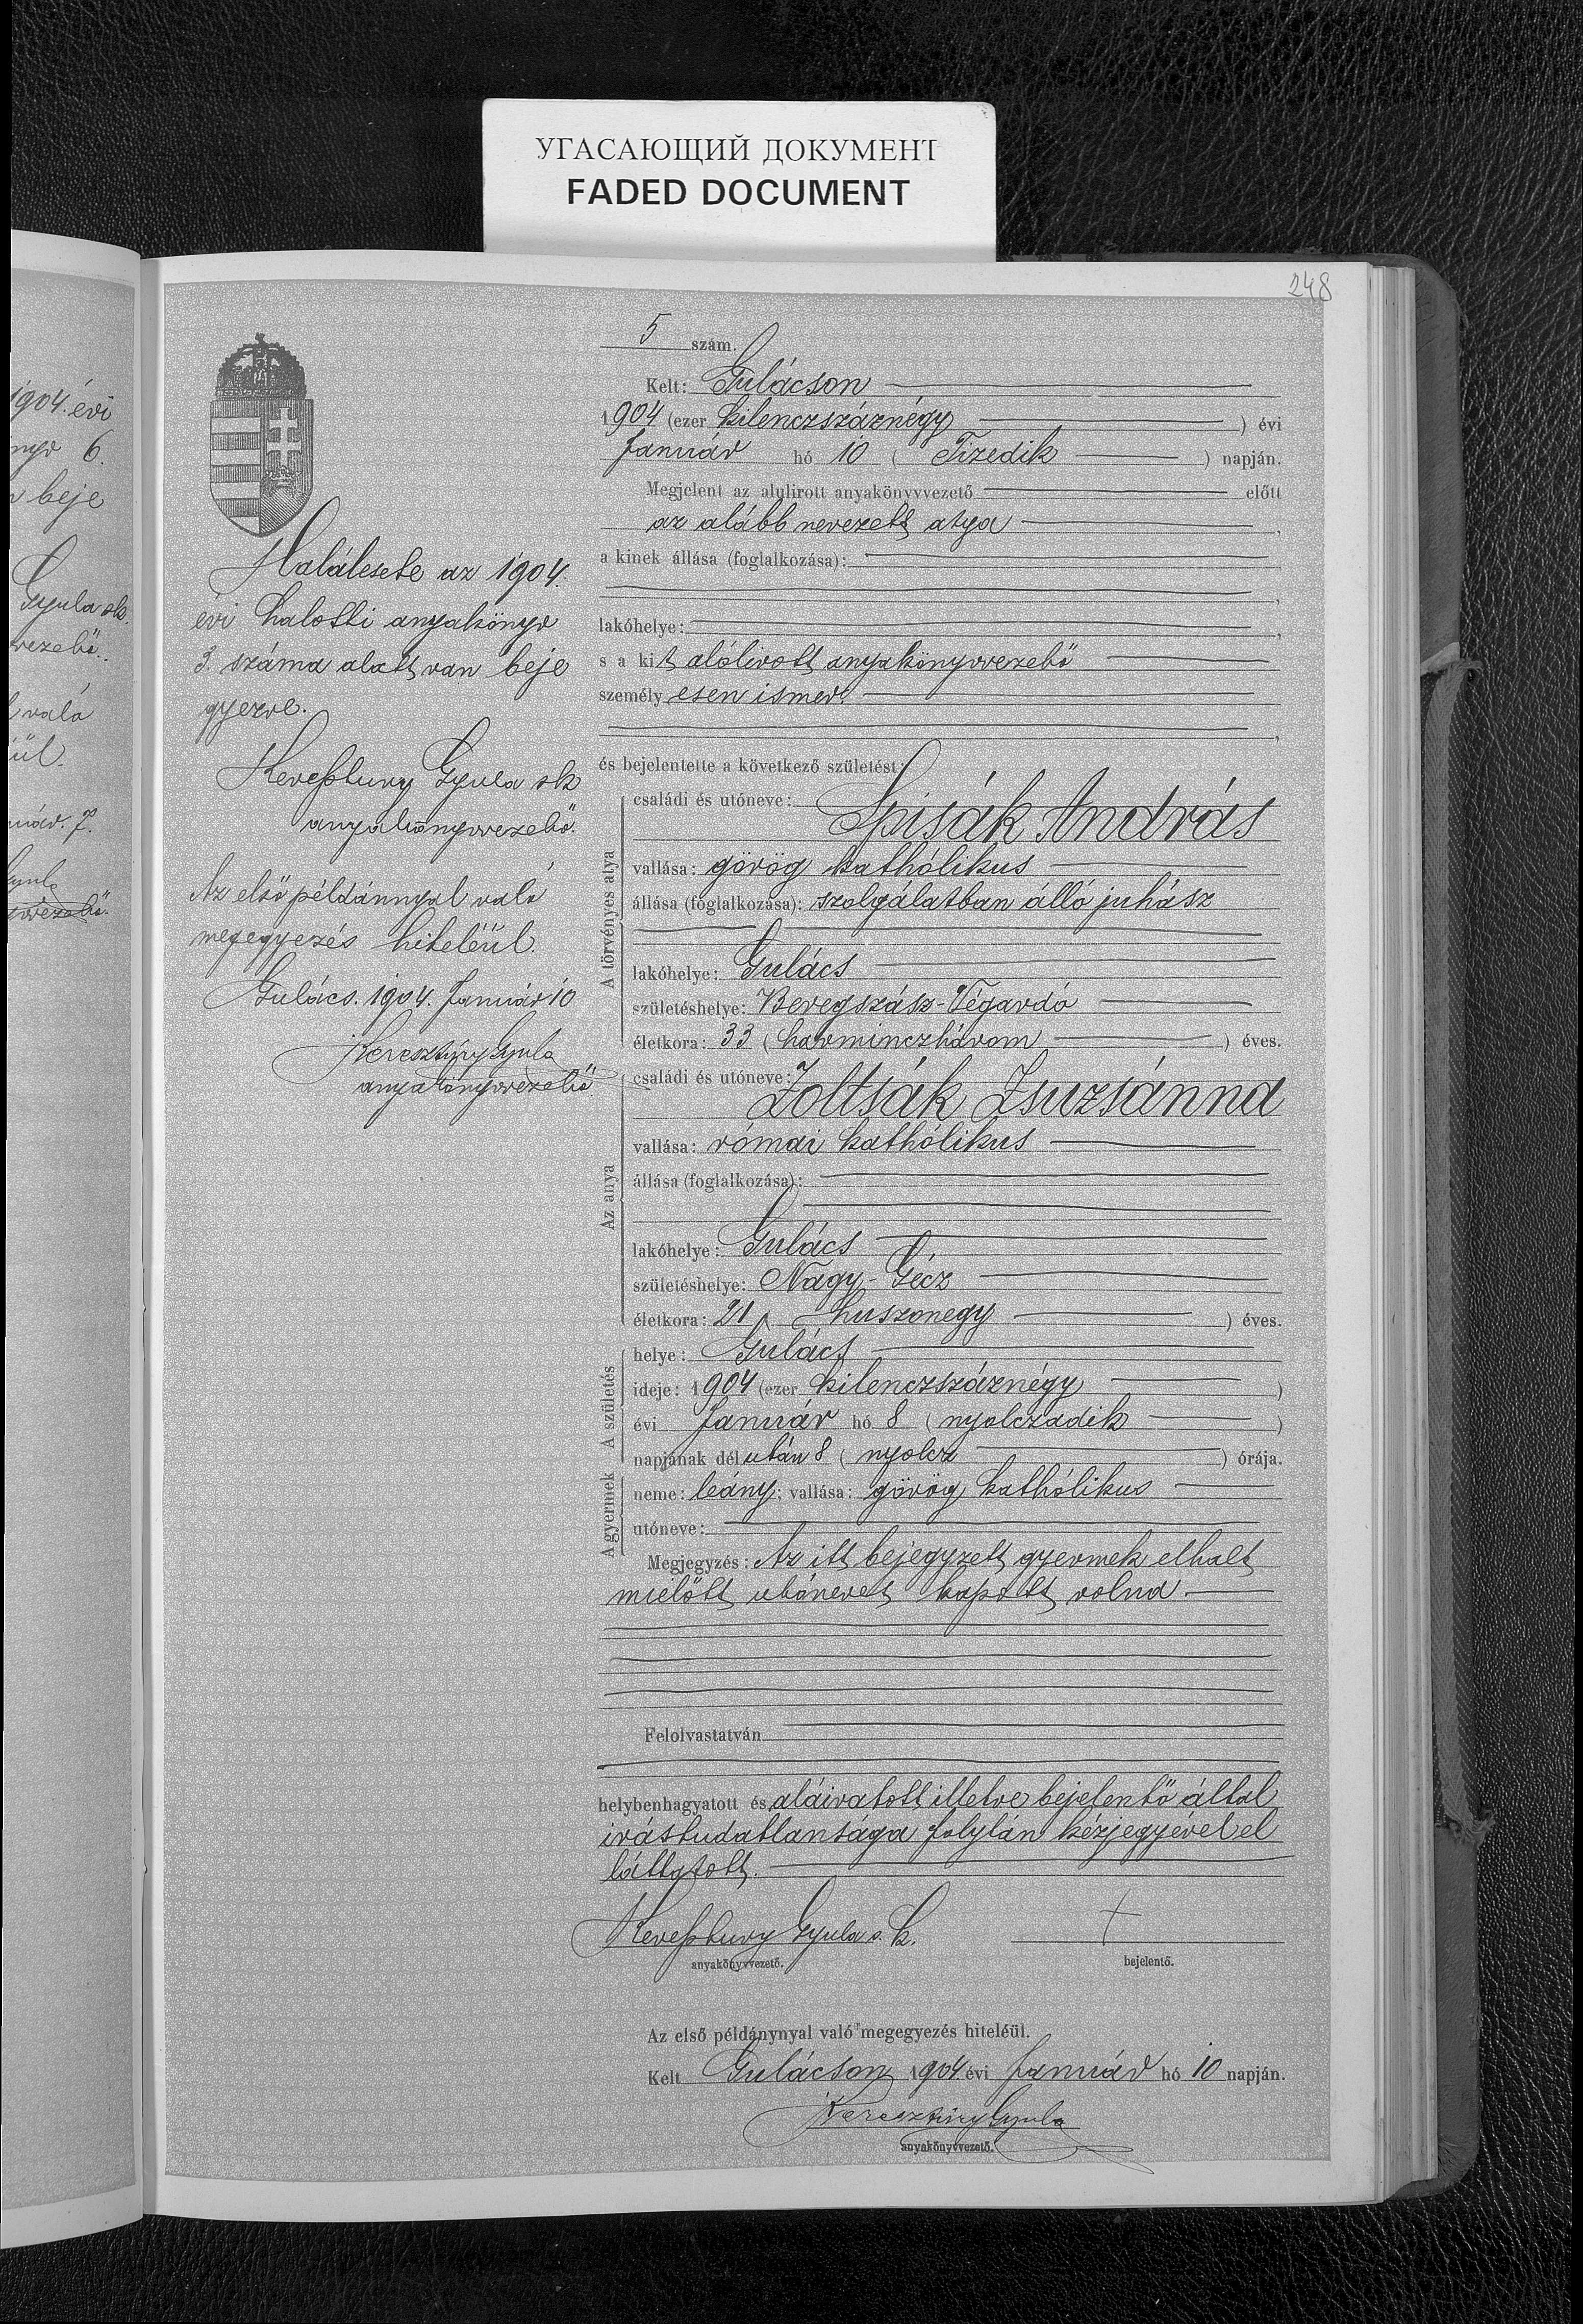 УГАСАЮЩИЙ ДОКУМЕНТ
FADED DOCUMENT
248
1904. évi
6.
beje
Gyula sk.
való
ül.
7.
5 szám.
Kelt: Gulácson
1904 (ezer kilenczszáznégy ) évi
Január hó 10 ( Tizedik ) napján.
Megjelent az alulirott anyakönyvvezető előtt
az alább nevezett atya ,
a kinek állása (foglalkozása):
,
lakóhelye: ,
s a kit alólirott anyakönyvvezető
személyesen ismer.
,
és bejelentette a következő születést:
A törvényes atya
családi és utóneve:
Spisák András
vallása: görög kathólikus
állása (foglalkozása): szolgálatban álló juhász
lakóhelye: Gulács
születéshelye: Beregszász-Végardó
életkora: 33 (harminczhárom ) éves.
Az anya
családi és utóneve:
Zoltsák Zsuzsánna
vallása: római kathólikus
állása (foglalkozása):
lakóhelye: Gulács
születéshelye: Nagy-Gécz
életkora: 21 ( huszonegy ) éves.
A születés
helye: Gulács
ideje: 1904 (ezer kilenczszáznégy )
évi Január hó 8 (nyolczadik )
napjának délután 8 ( nyolcz ) órája.
A gyermek
neme: leány; vallása: görög kathólikus
utóneve:
Megjegyzés: Az itt bejegyzett gyermek elhalt
mielőtt utónevet kapott volna.
Felolvastatván
helybenhagyatott és aláiratott illetve bejelentő által
irástudatlansága folytán kézjegyével el
láttatott.
Kereßtury Gyula s. k. +
anyakönyvvezető. bejelentő.
Az első példánynyal való megegyezés hiteléül.
Kelt Gulácson 1904 évi Január hó 10 napján.
Keresztúry Gyula
anyakönyvvezető.
Halálesete az 1904.
évi halotti anyakönyv
3. száma alatt van beje
gyezve.
Kereßtury Gyula sk
anyakönyvvezető.
Az első példánnyal való
megegyezés hiteléül.
Gulács. 1904. Január 10
Keresztúry Gyula
anyakönyvvezető.